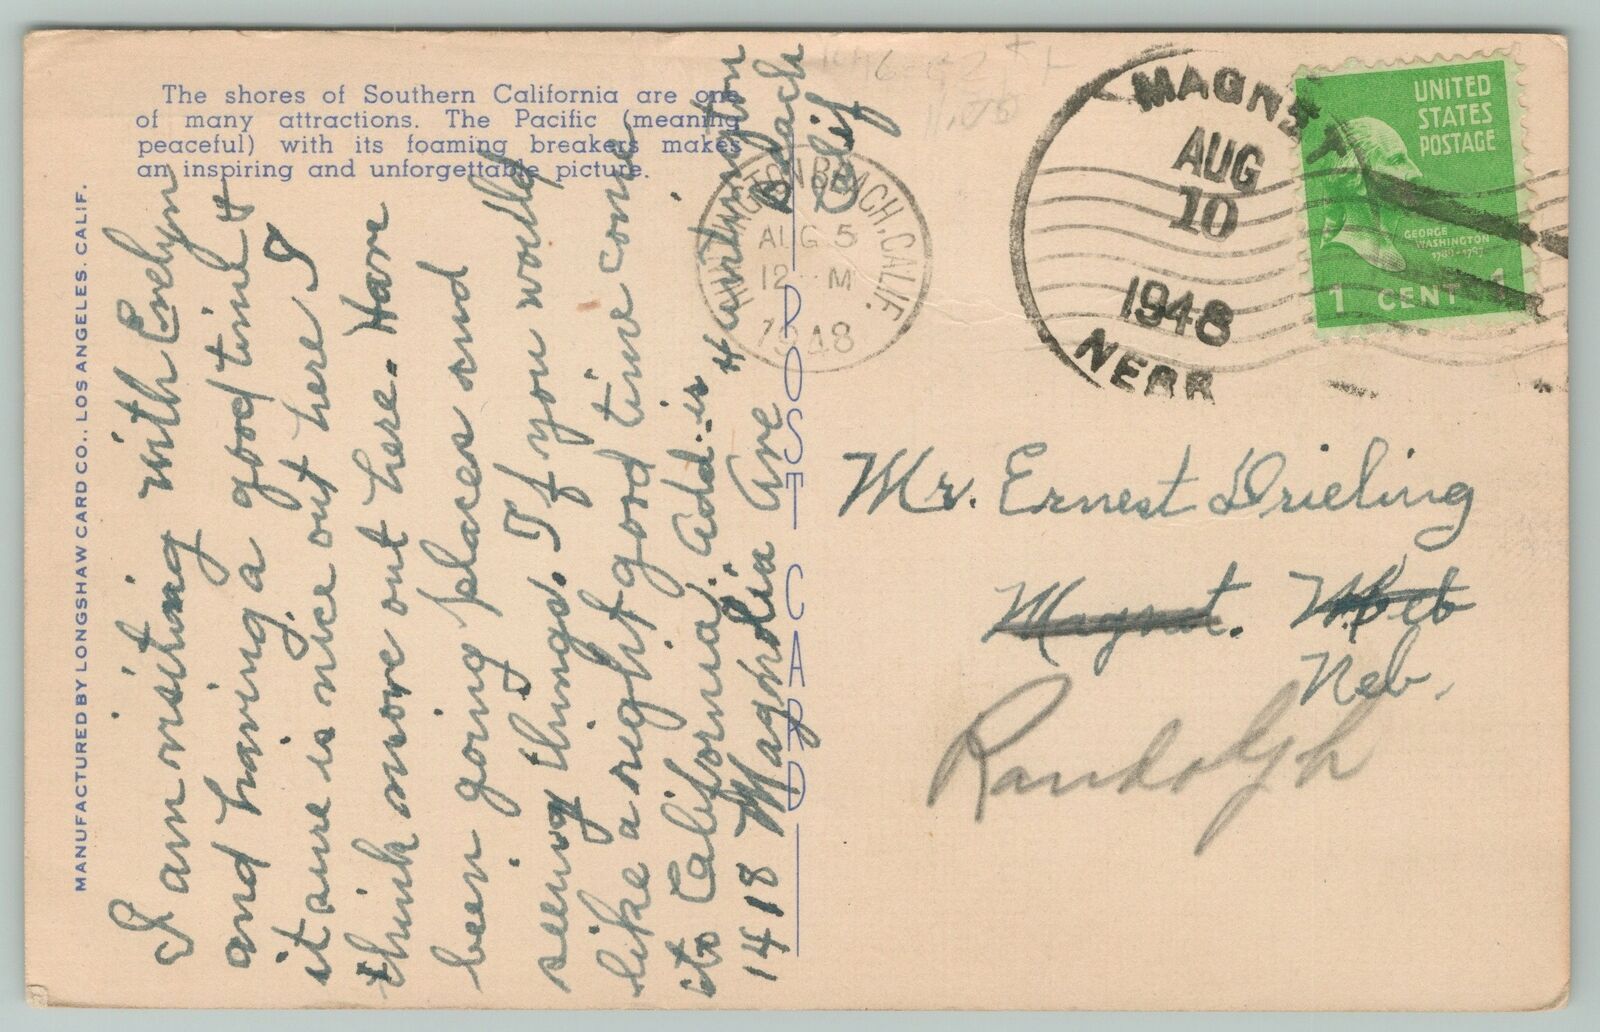 The shores of Southern California are one
of many attractions. The Pacific (meaning
peaceful) with its foaming breakers makes
an inspiring and unforgettable picture.
MANUFACTURED BY LONGSHAW CARD CO., LOS ANGELES. CALIF.
I am visiting with Evelyn
and having a good time &
it sure is nice out here I
think more out here. Have
been going places and
seeing things. If you would
like a right good time come
to California. Add. is
1418 Magnolia Ave Huntington
Beach
Calif
POST CARD
HUNTINGTON BEACH, CALIF.
AUG 5
12 M
1948
MAGNET
AUG
10
1948
NEBR
UNITED
STATES
POSTAGE
GEORGE
WASHINGTON
1789-1797
1 CENT 1
Mr. Ernest Drieling
Magnet. Neb
Neb.
Randolph